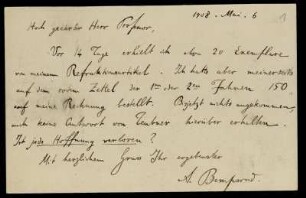 1908. Mai. 6
Hoch geehrter Herr Professor,
Vor 14 Tage erhielt ich schon 20 Exemplare
von meinem Refraktionsartikel. Ich hatte aber meinerseits
auf dem roten Zettel der 1ten der 2ten Fahnen 150
auf meine Rechnung bestellt. Bis jetzt nichts angekommen,
auch keine Antwort von Teubner hierüber erhalten.
Ist jede Hoffnung verloren?
Mit herzlichem Gruss Ihr ergebenster
A. Bemporad.